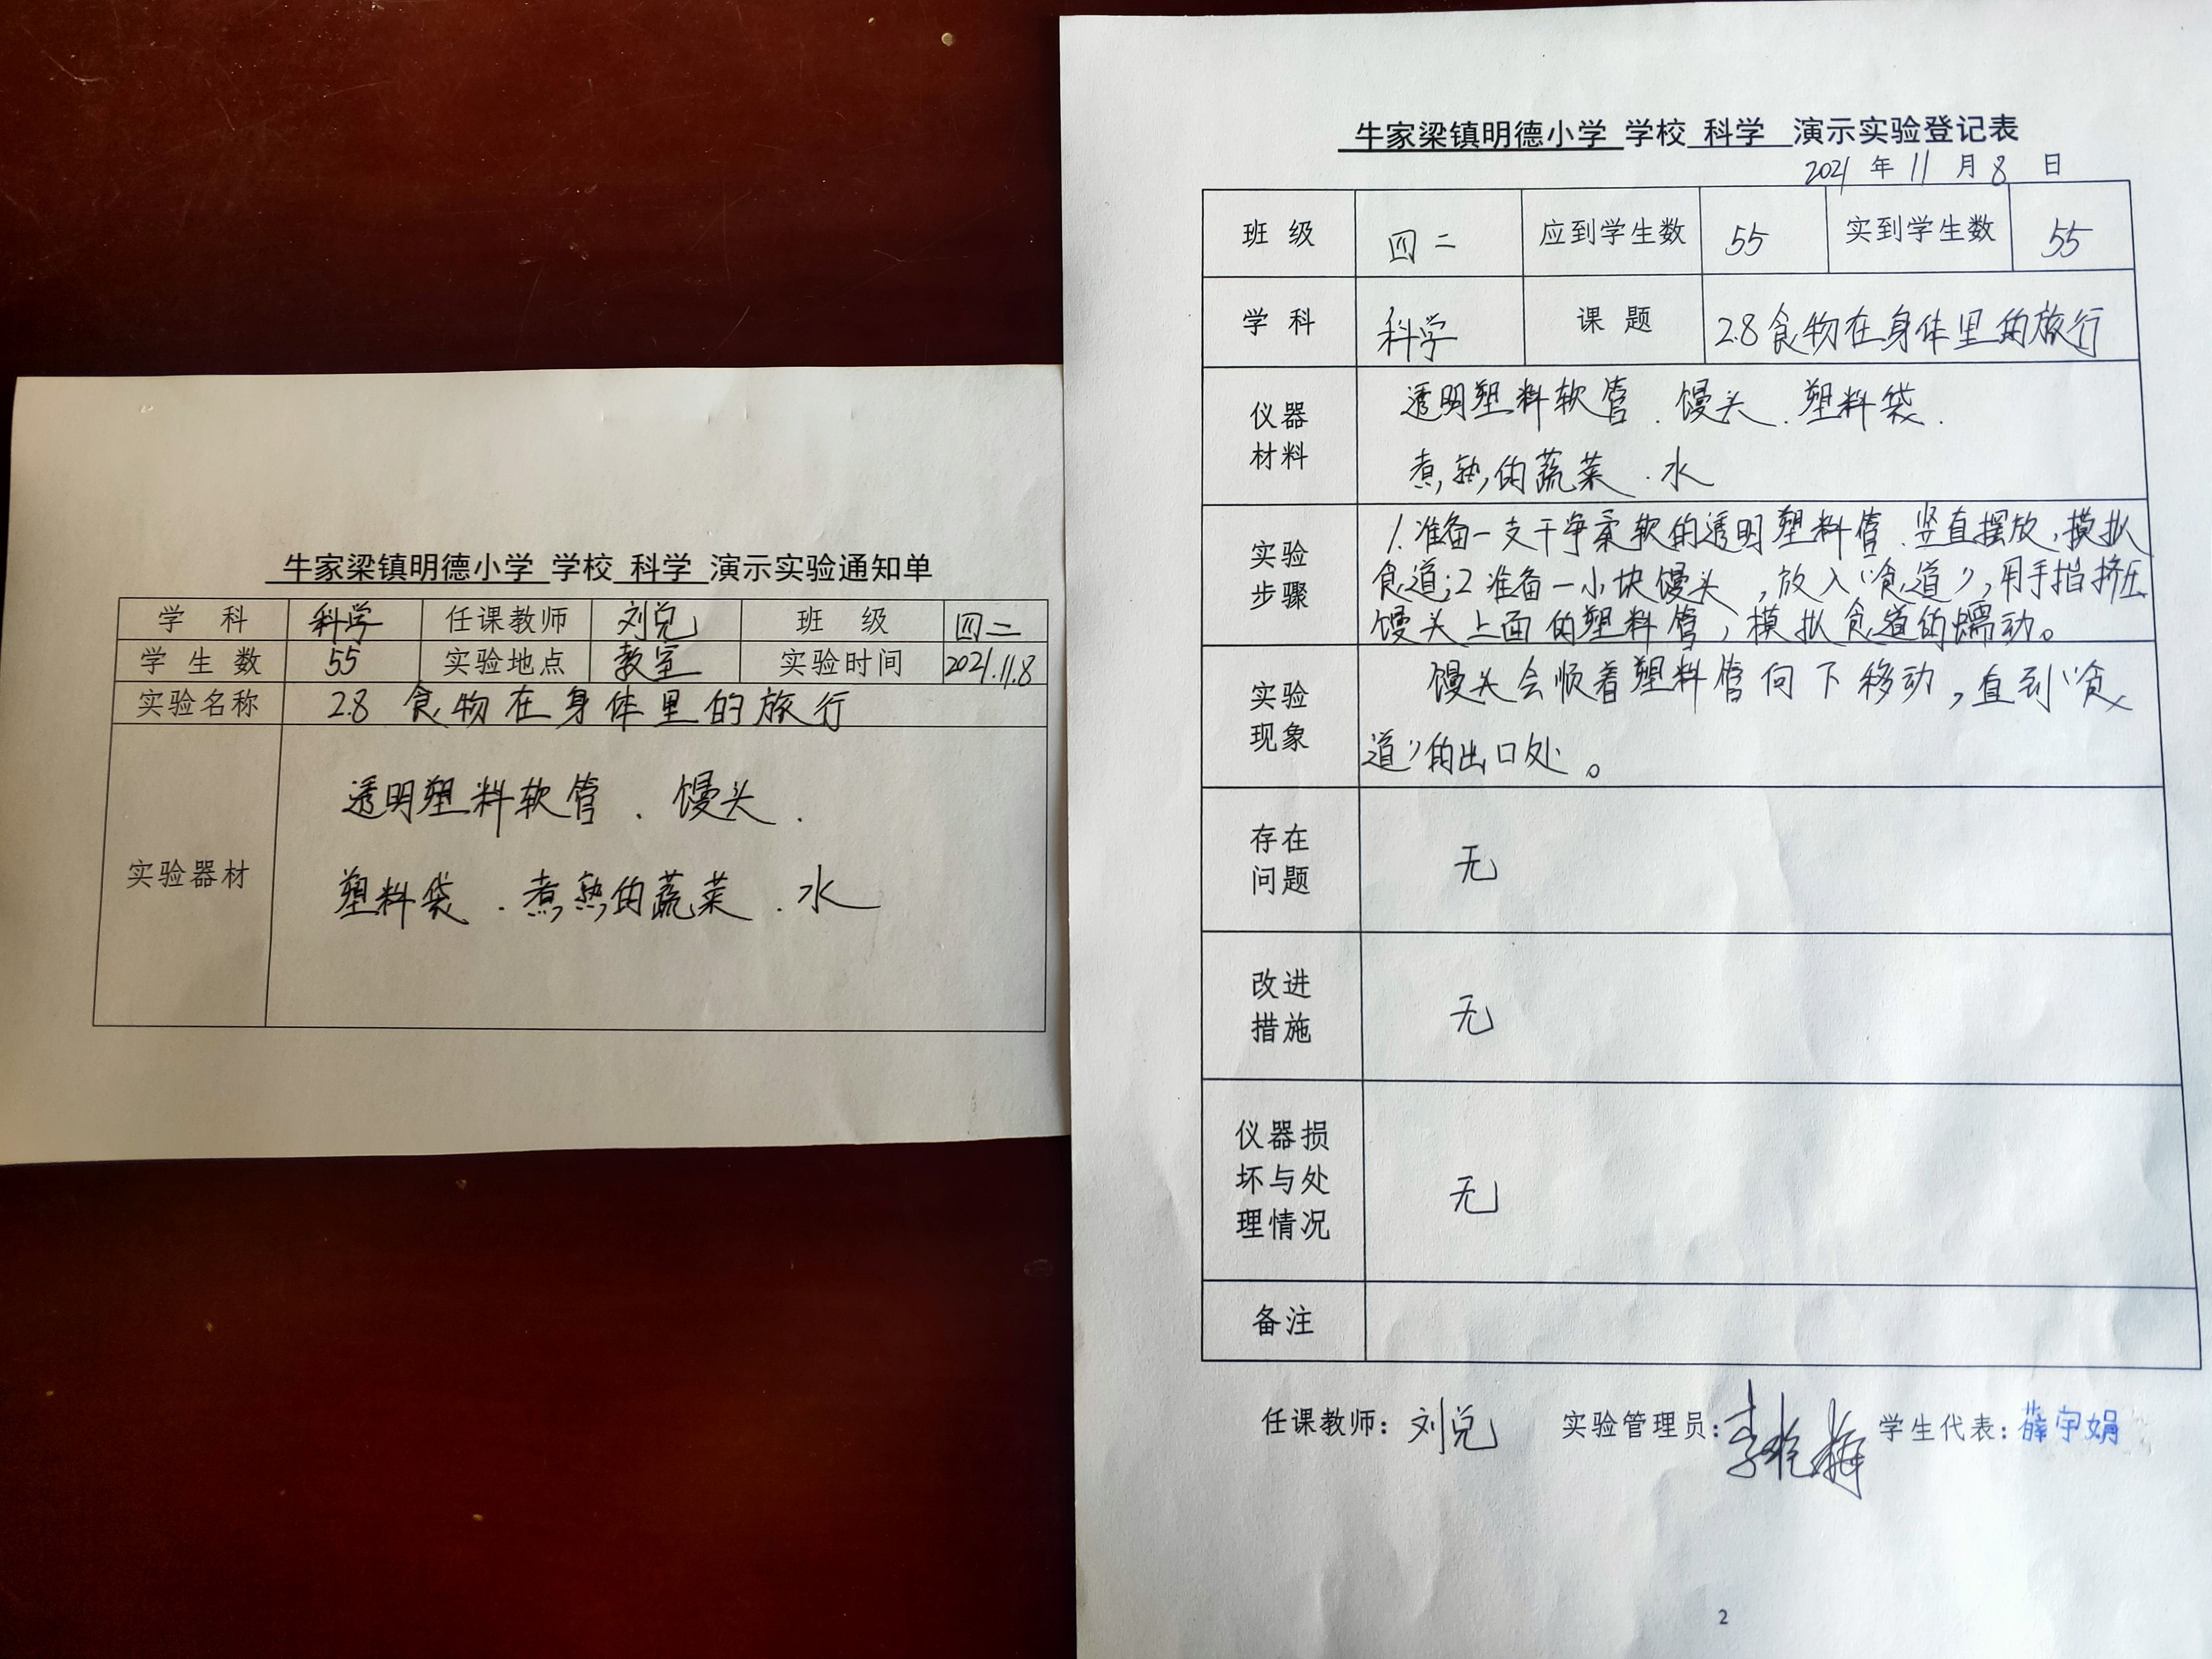 牛家梁镇明德小学 学校 科学 演示实验通知单
学 科 科学 任课教师 刘兑 班 级 四二
学 生 数 55 实验地点 教室 实验时间 2021.11.8
实验名称 2.8 食物在身体里的旅行
实验器材
透明塑料软管 . 馒头 .
塑料袋 . 煮熟的蔬菜 . 水
牛家梁镇明德小学 学校 科学 演示实验登记表
2021 年 11 月 8 日
班 级 四二 应到学生数 55 实到学生数 55
学 科 科学 课 题 2.8食物在身体里的旅行
仪器
材料
透明塑料软管 . 馒头 . 塑料袋 .
煮熟的蔬菜 . 水
实验
步骤
1.准备一支干净柔软的透明塑料管.竖直摆放,模拟
食道;2准备一小块馒头,放入“食道”,用手指挤压
馒头上面的塑料管,模拟食道的蠕动。
实验
现象
馒头会顺着塑料管向下移动,直到“食
道”的出口处。
存在
问题
无
改进
措施
无
仪器损
坏与处
理情况
无
备注
任课教师: 刘兑 实验管理员: 学生代表: 薛宇娟
2